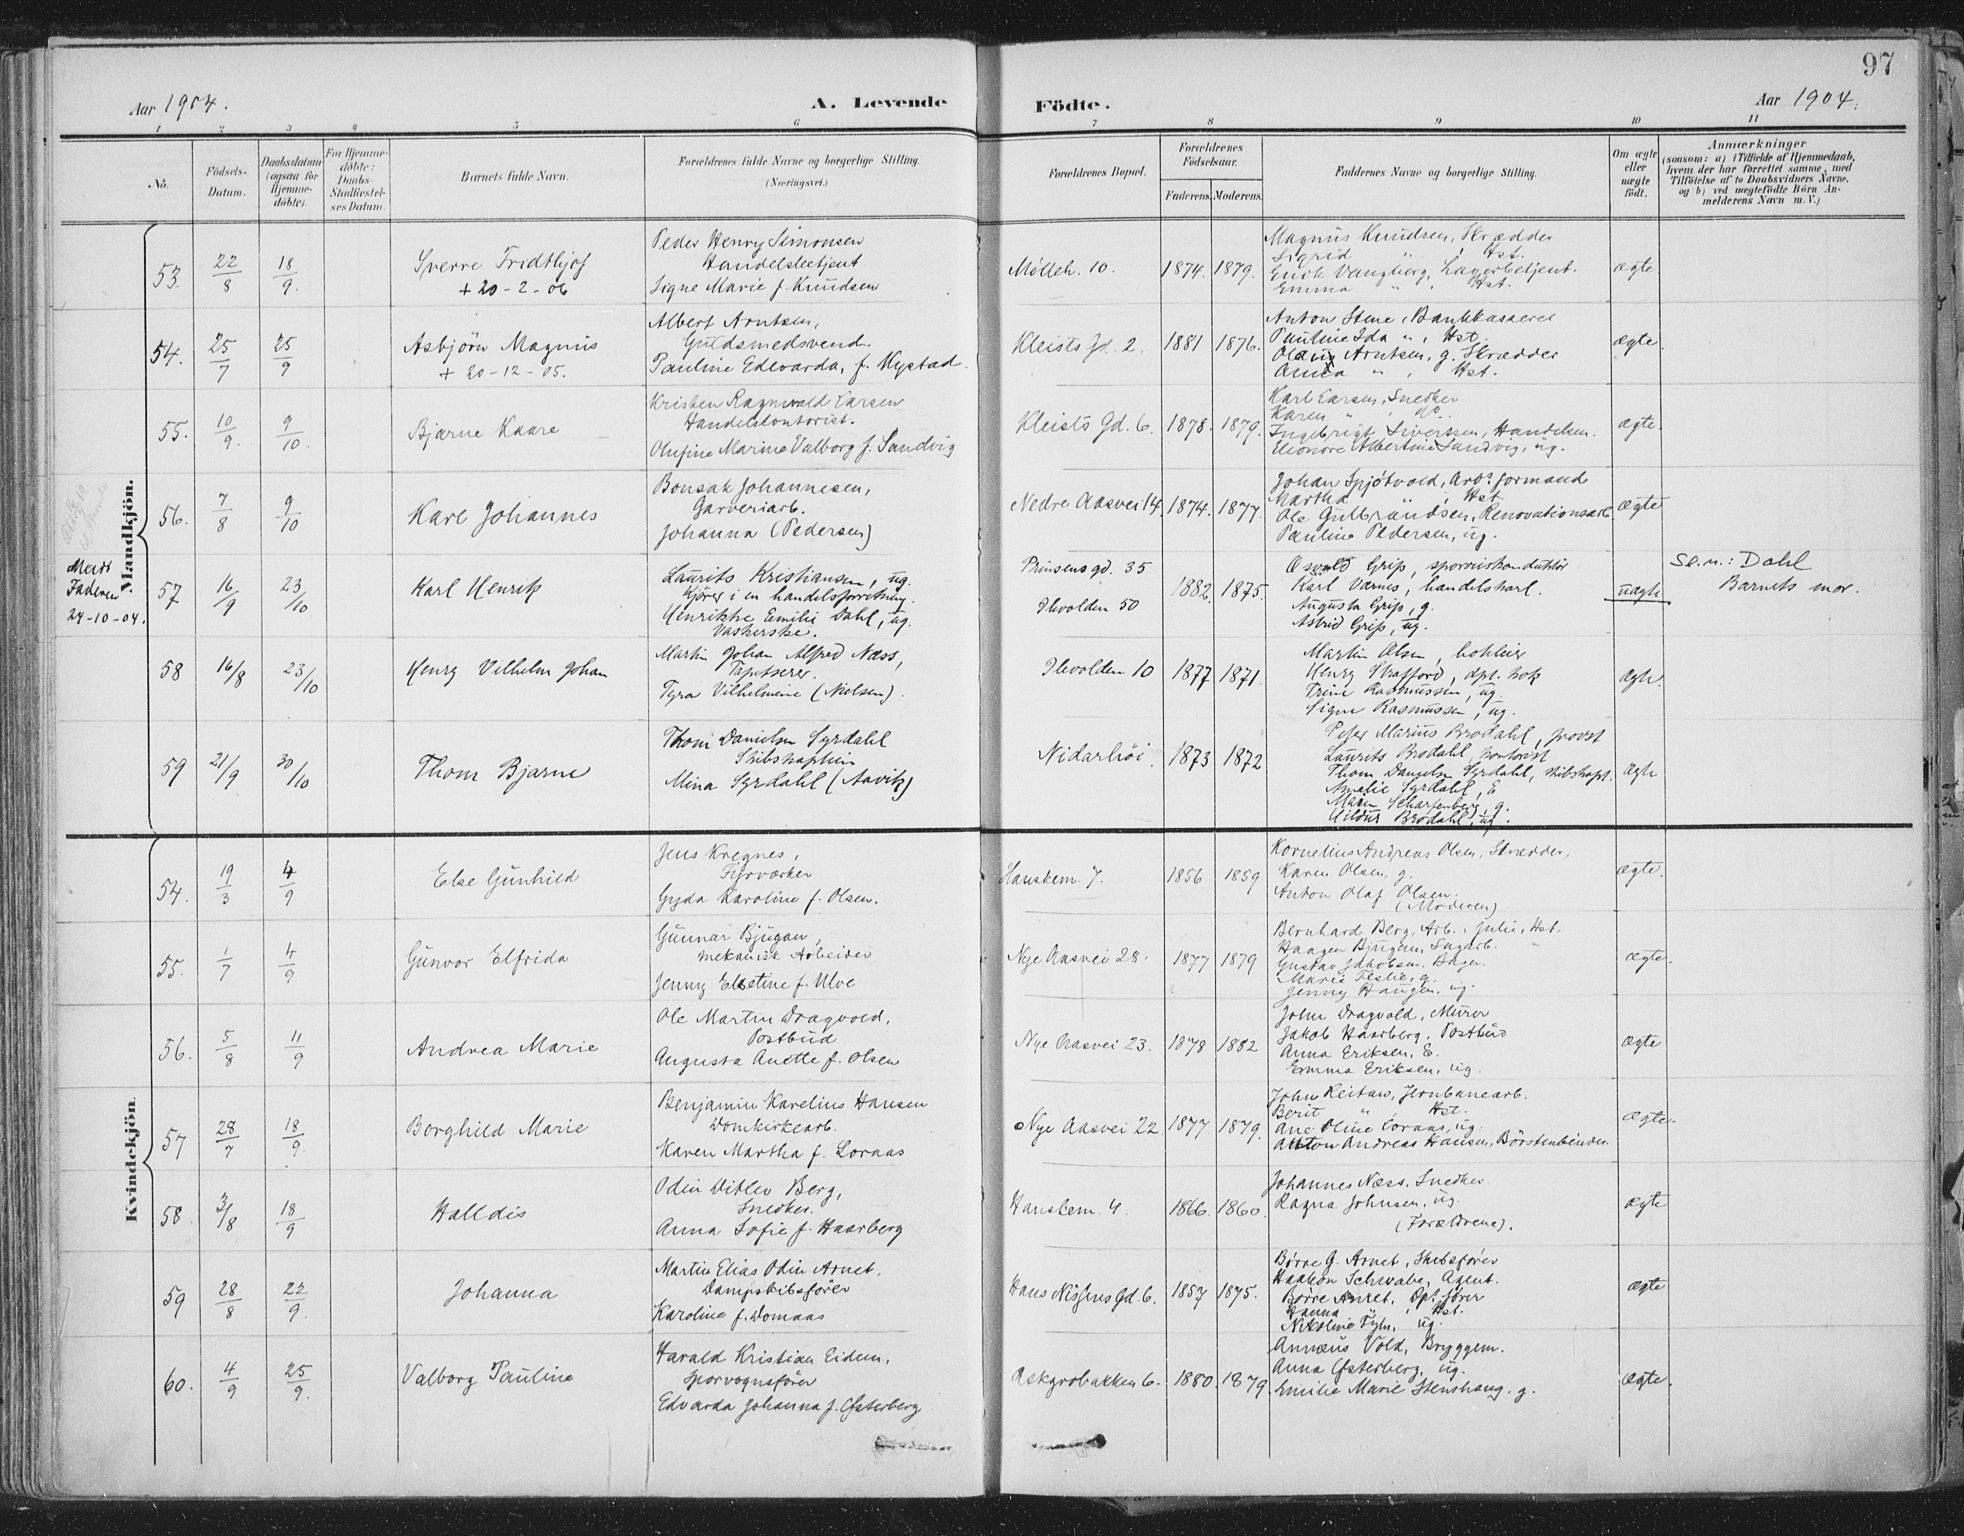 97
Aar 1904.
A. Levende Födte.
Aar 1904.
1 2 3 4 5 6 7 8 9 10 11
No.
Födsels-Datum.
Daabsdatum (ogsaa for Hjemme-döbte).
For Hjemme-döbte: Daabs-Stadfæstel-ses Datum.
Barnets fulde Navn.
Forældrenes fulde Navne og borgerlige Stilling.
(Næringsvei.)
Forældrenes Bopæl.
Forældrenes Fødselsaar.
Faderens. Moderens.
Faddernes Navne og borgerlige Stilling.
Om ægte eller uægte født.
Anmærkninger
(saasom: a) i Tilfælde af Hjemmedaab,
hvem der har forrettet samme, med
Tilföielse af to Daabsvidners Navne.
og b) ved uægtefödte Börn An-
melderens Navn m. V.)
Mandkjön.
53. 22/8 18/9.
Sverre Fridthjof
+ 20-2-06
Peder Henry Simonsen
Handelsbetjent
Signe Marie f. Knudsen
Mölleb. 10. 1874. 1879.
Magnus Knudsen, Skrædder
Sigrid " , Hst.
Erich Vangberg, Lagerbetjent.
Emma " , Hst.
ægte
54. 25/7 25/9
Asbjörn Magnus
+ 20-12-05.
Albert Arntsen,
Guldsmedsvend.
Pauline Edevarda, f. Nystad.
Kleists Gd. 2. 1881 1876.
Anton Stene, Bankkasserer
Pauline Ida " , Hst.
Olaus Arntsen, g. Skrædder
Anna " , Hst.
ægte.
55. 10/9. 9/10.
Bjarne Kaare
Kristen Ragnvald Larsen
Handelskontorist.
Olufine Marine Valborg f. Sandvig
Kleists Gd. 6. 1878. 1879.
Karl Larsen, Snedker
Karen " , do.
Ingebrigt Sivertsen, Handelsm.
Eleonore Albertine Sandvig, ug.
ægte.
56. 7/8 9/10
Karl Johannes
Bonsak Johannesen,
Garveriarb.
Johanna (Pedersen)
Nedre Aasvei 14. 1874. 1877.
Johan Spjötvold, Arb.formand
Martha " , Hst
Ole Gulbrandsen, Renovationsarb
Pauline Pedersen, ug.
ægte
Meldt
Faderen
24-10-04.
57 16/9 23/10
Karl Henrik
Laurits Kristiansen, ug.
kjører i en handelsforretning.
Henrikke Emilie Dahl, ug.
Vaskerske.
Prinsens gd. 35
Ilevolden 50
1882. 1875.
Osvald Grip, sporveiskonduktör
Karl Værnes, handelskarl.
Augusta Grip, g.
Astrid Grip, ug.
uægte
Se. n.: Dahl
Barnets mor.
58 16/8 23/10
Henry Vilhelm Johan
Martin Johan Alfred Næss,
Tapetserer.
Tyra Vilhelmine (Nielsen).
Ilevolden 10 1877 1871.
Martin Olsen,
Henry Strafford, dpt. kok
Trine Rasmussen, ug.
Signe Rasmussen, ug.
Ægte.
59 21/9 30/10
Thom Bjarne
Thom Danielsen Syrdahl
Skibskaptein
Mina Syrdahl (Aavik)
Nidarhöi. 1873 1872
Peter Marius Brodahl, provst
Laurits Brodahl, kontorist
Thom Danielsen Syrdahl, skibskapt.
Amalie Syrdahl, E
Maren Scharfenberg, g.
Hildur Brodahl, ug.
Ægte
Kvindekjön.
54. 19/3 4/9
Else Gunhild
Jens Kregnes,
Fyrvørker
Gyda Karoline f. Olsen.
Hanskem. 7. 1856 1859
Kornelius Andreas Olsen, Skrædder.
Karen Olsen, g.
Anton Olaf Olsen.
(Moderen)
ægte.
55. 1/7 4/9
Gunvor Elfrida
Gunnar Bjugan,
mekanisk Arbeider
Jenny Elsetine f. Ulve
Nye Aasvei 28. 1877 1879
Bernhard Berg, Arb., Julie, Hst.
Haagen Bjugan, Sagarb.
Gustav Jakobsen, Bager.
Marie Teslie, g.
Jenny Haugen, ug.
ægte.
56. 5/8 11/9
Andrea Marie
Ole Martin Dragvold,
Postbud
Augusta Anette f. Olsen
Nye Aasvei 23. 1878 1882
John Dragvold, Murer
Jakob Haarberg, Postbud
Anna Eriksen, E.
Emma Eriksen, ug.
ægte
57 28/7 18/9.
Borghild Marie
Benjamin Karelius Hansen
Domkirkearb.
Karen Martha f. Loraas
Nye Aasvei 22 1877. 1879.
John Reitan, Jernbanearb.
Berit " Hst.
Ane Oline Loraas, ug.
Anton Andreas Hansen, Börstenbinder.
ægte.
58. 3/8 18/9
Halldis
Odin Ditlev Berg,
Snedker.
Anna Sofie f. Haarberg
Hanskem. 4. 1866. 1860.
Johannes Næss, Snedker.
Ragna Johnsen, ug.
(Forældrene).
ægte
59 28/8 22/9.
Johanna
Martin Elias Odin Arnet.
Dampskibsfører
Karoline f. Domaas
Hans Nissens Gd. 6. 1857 1875.
Børre G. Arnet, Skibsfører
Haakon Schwabe, Agent.
Børre Arnet, Dpt.fører
Hanna " , Hst.
Nikoline Fyhn, ug.
ægte
60. 4/9 25/9.
Valborg Pauline
Harald Kristian Eidem,
Sporvognsfører
Edvarda Johanna f. Østerberg
Askgrobakken 6. 1880. 1879.
Annæus Vold, Bryggem.
Anna Østerberg, ug.
Emilie Marie Stenshaug. g.
ægte.